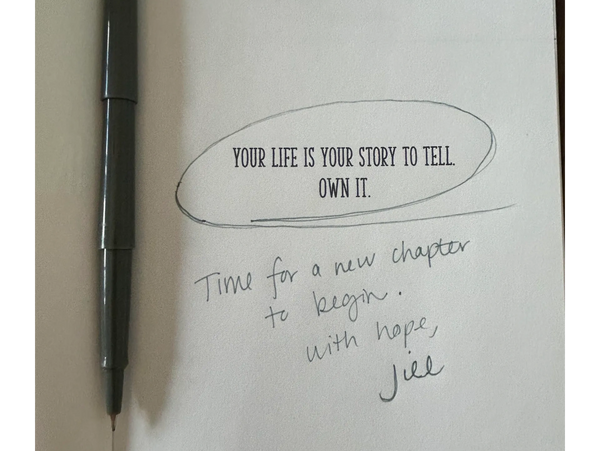 YOUR LIFE IS YOUR STORY TO TELL.
OWN IT.
Time for a new chapter
to begin.
with hope,
Jill